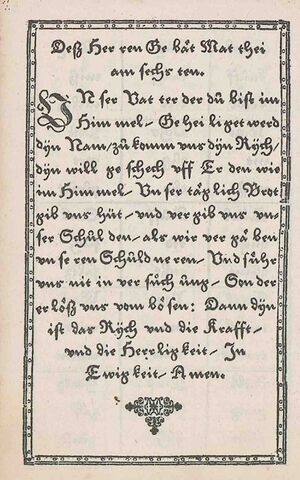 Deß Her ren Ge båt Mat thei
am sechs ten.
UN ser Vat ter der dů bist im
Him mel/ Ge hei li get werd
dyn Nam/ zů komm vns dyn Rych/
dyn will ge schech vff Er den wie
im Him mel/ Vn ser täg lich Brot
gib vns hüt/ vnd ver gib vns vn-
ser Schul den/ als wir ver gä ben
vn se ren Schuld ne ren/ Vnd führ
vns nit in ver such ung/ Son der
er löß vns vom bö sen: Dann dyn
ist das Rych vnd die Krafft/
vnd die Herrligkeit/ In
Ewigkeit/ Amen.